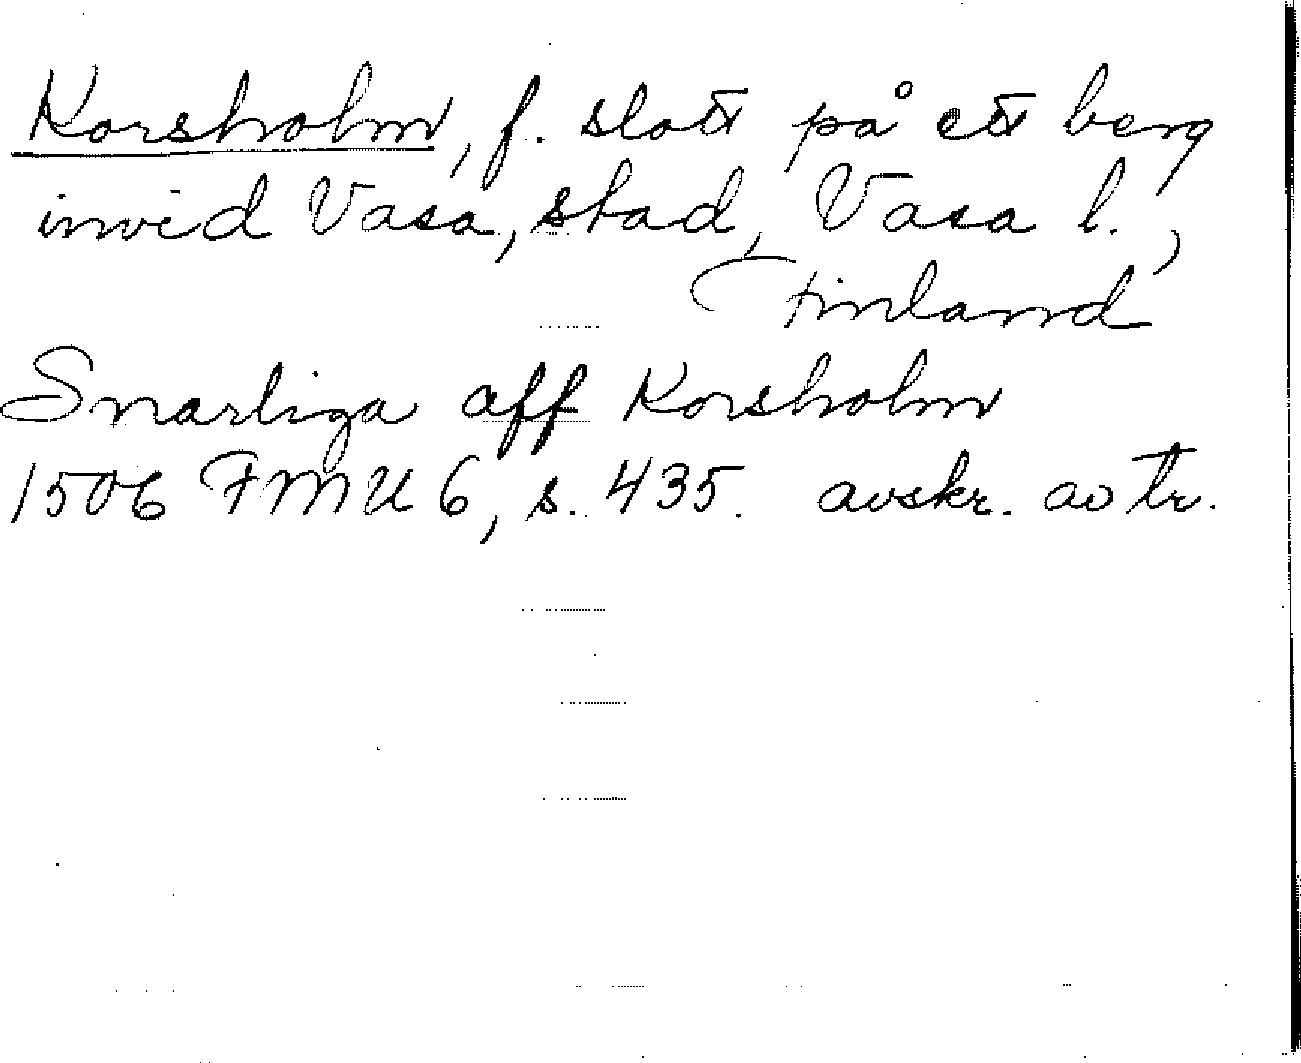 Korsholm, f. slott på ett berg
invid Vasa, stad, Vasa l.,
Finland
Snarliga aff Korsholm
1506 FMU 6, s. 435. avskr. av tr.